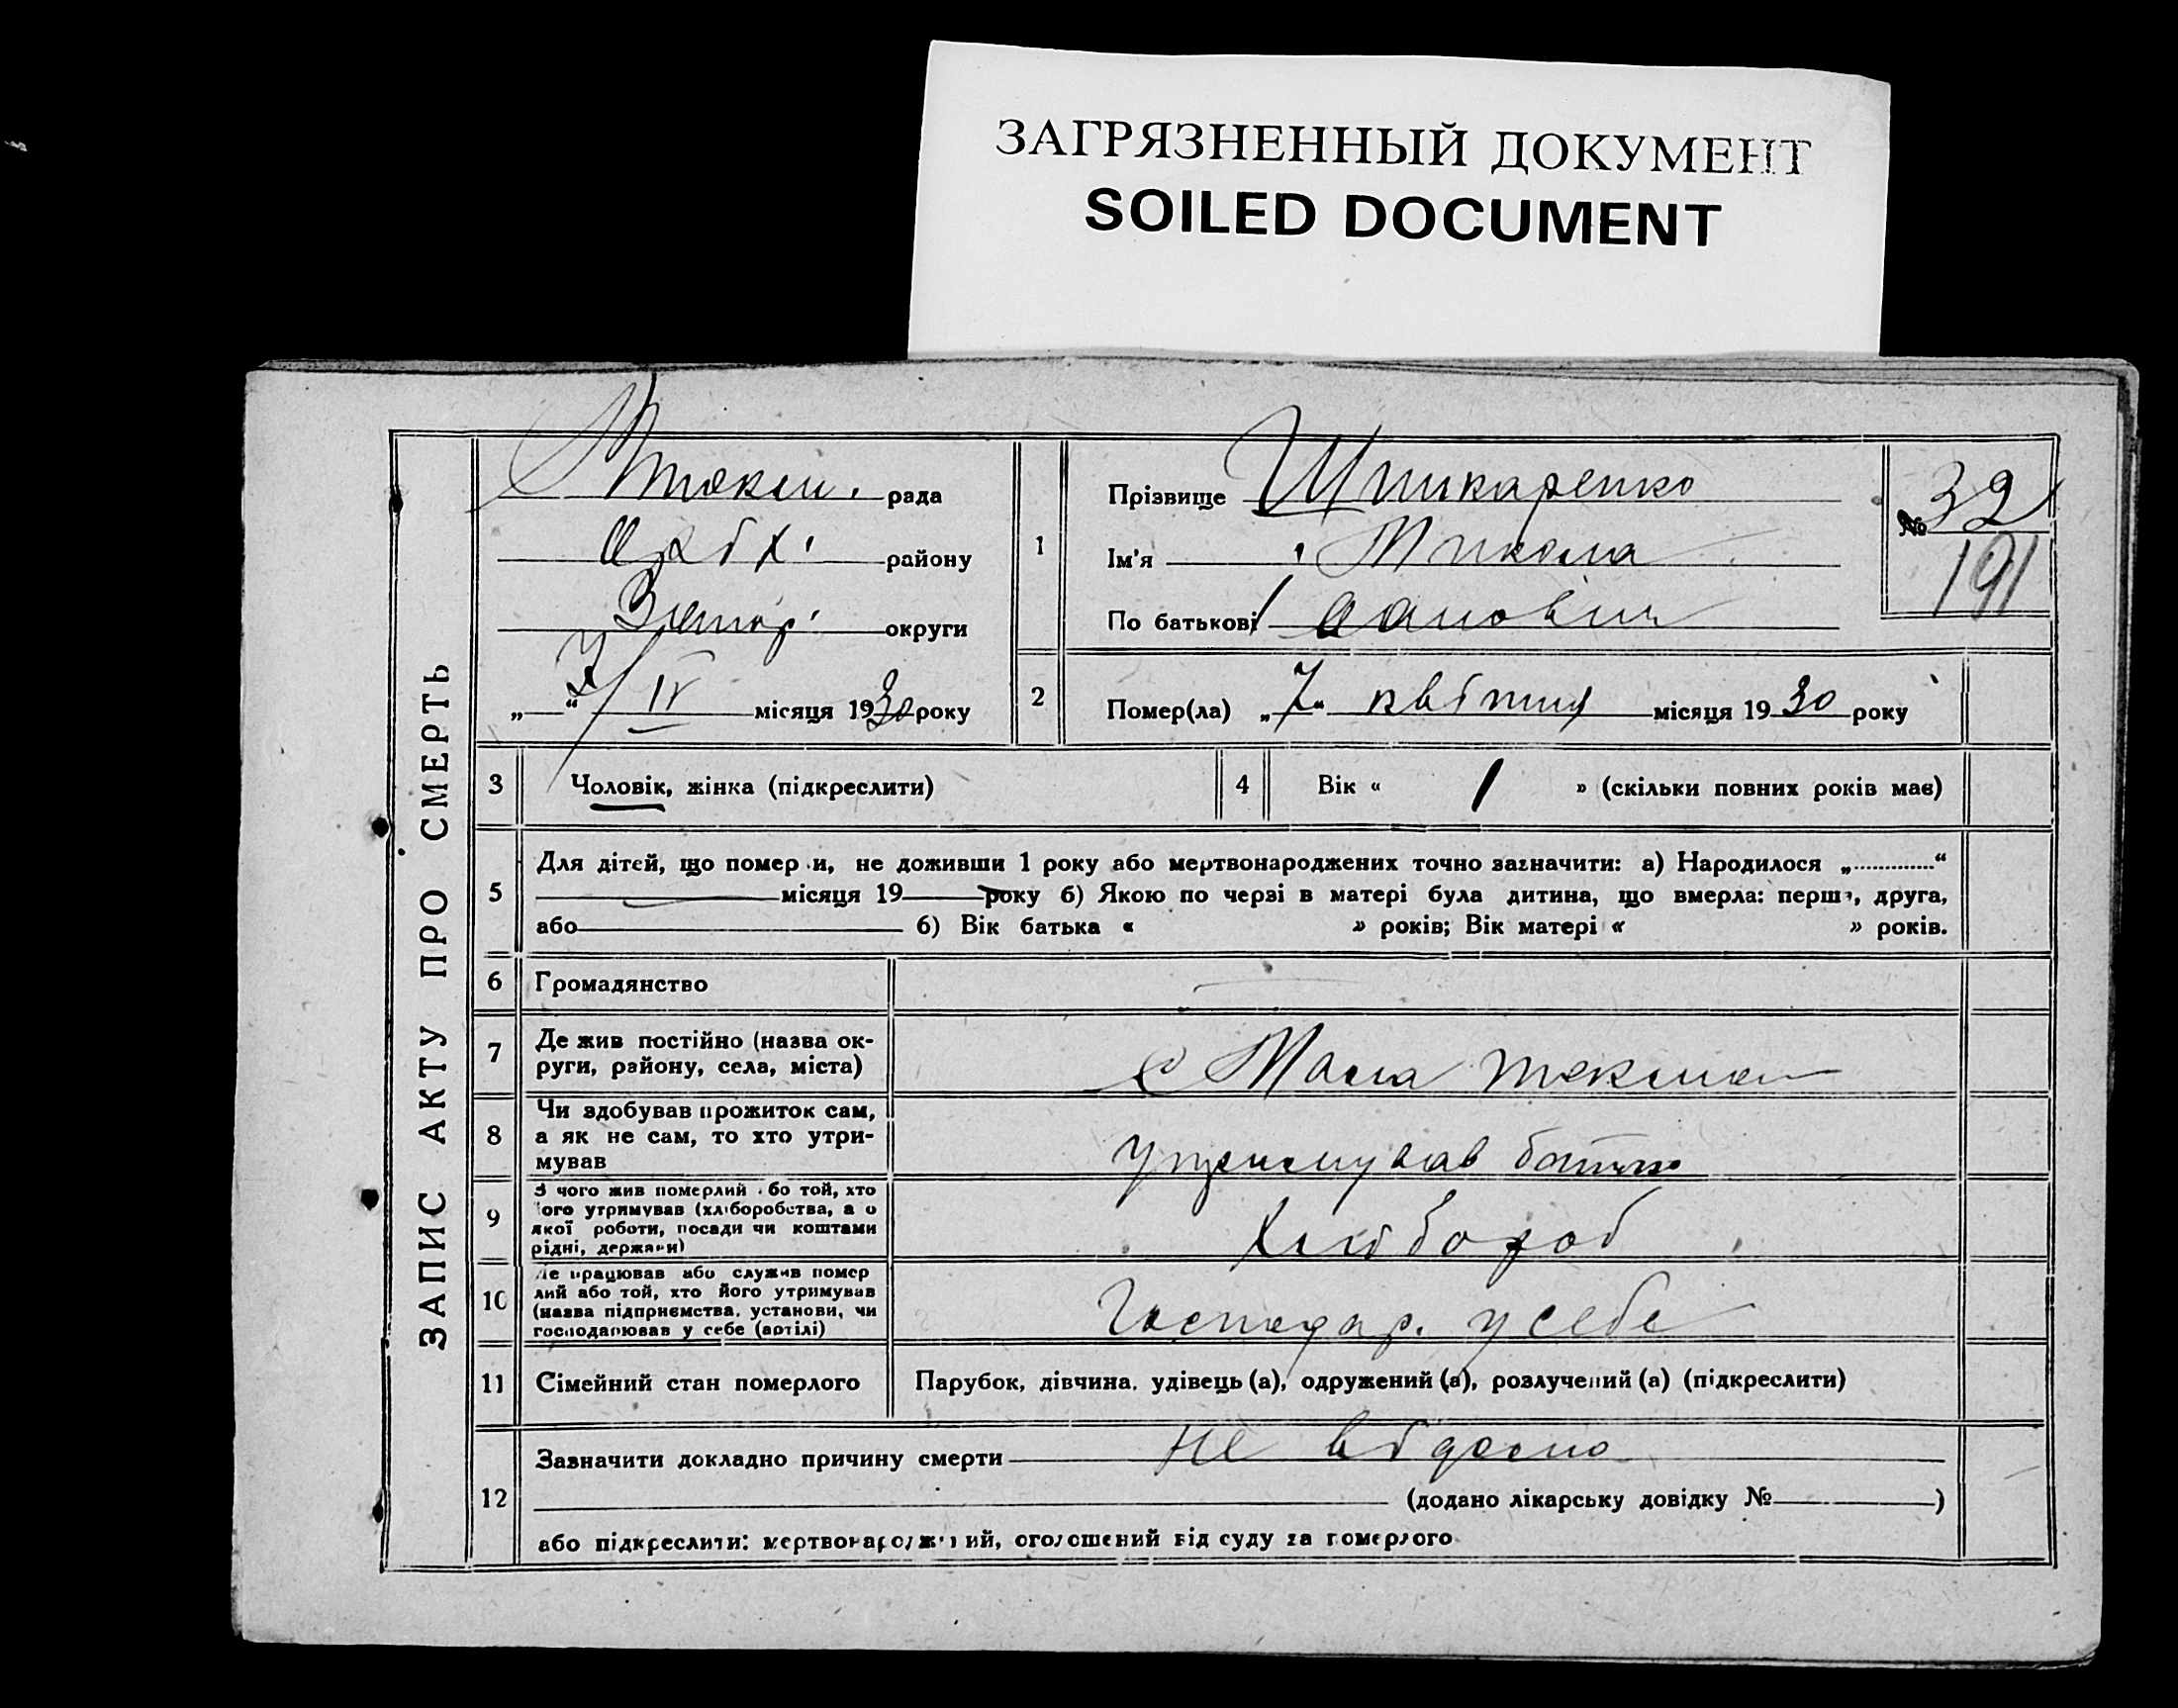 ЗАГРЯЗНЕННЫЙ ДОКУМЕНТ
SOILED DOCUMENT
ЗАПИС АКТУ ПРО СМЕРТЬ
М Токм. рада
району
округи
7/IV місяця 1930 року
1
Прізвище Шпикаренко
Ім'я Микола
По батькові
№ 32
191
2
Помер(ла) „7“ квітня місяця 1930 року
3
Чоловік, жінка (підкреслити)
4
Вік « 1 » (скільки повних років має)
5
Для дітей, що померли, не доживши 1 року або мертвонароджених точно зазначити: а) Народилося „ “
місяця 19 року б) Якою по черзі в матері була дитина, що вмерла: перша, друга,
або б) Вік батька « » років; Вік матері « » років.
6
Громадянство
7
Де жив постійно (назва ок-
руги, району, села, міста)
с Мала Токма
8
Чи здобував прожиток сам,
а як не сам, то хто утри-
мував
утримував батько
9
З чого жив померлий або той, хто
його утримував (хліборобства, а о
якої роботи, посади чи коштами
рідні, держави)
Хлібороб
10
Де працював або служив помер
лий або той, хто його утримував
(назва підприємства, установи, чи
господарював у себе (артілі)
Господар. у себе
11
Сімейний стан померлого
Парубок, дівчина, удівець (а), одружений (а), розлучений (а) (підкреслити)
12
Зазначити докладно причину смерти не відомо
(додано лікарську довідку № )
або підкреслити: мертвонароджений, оголошений від суду за померлого